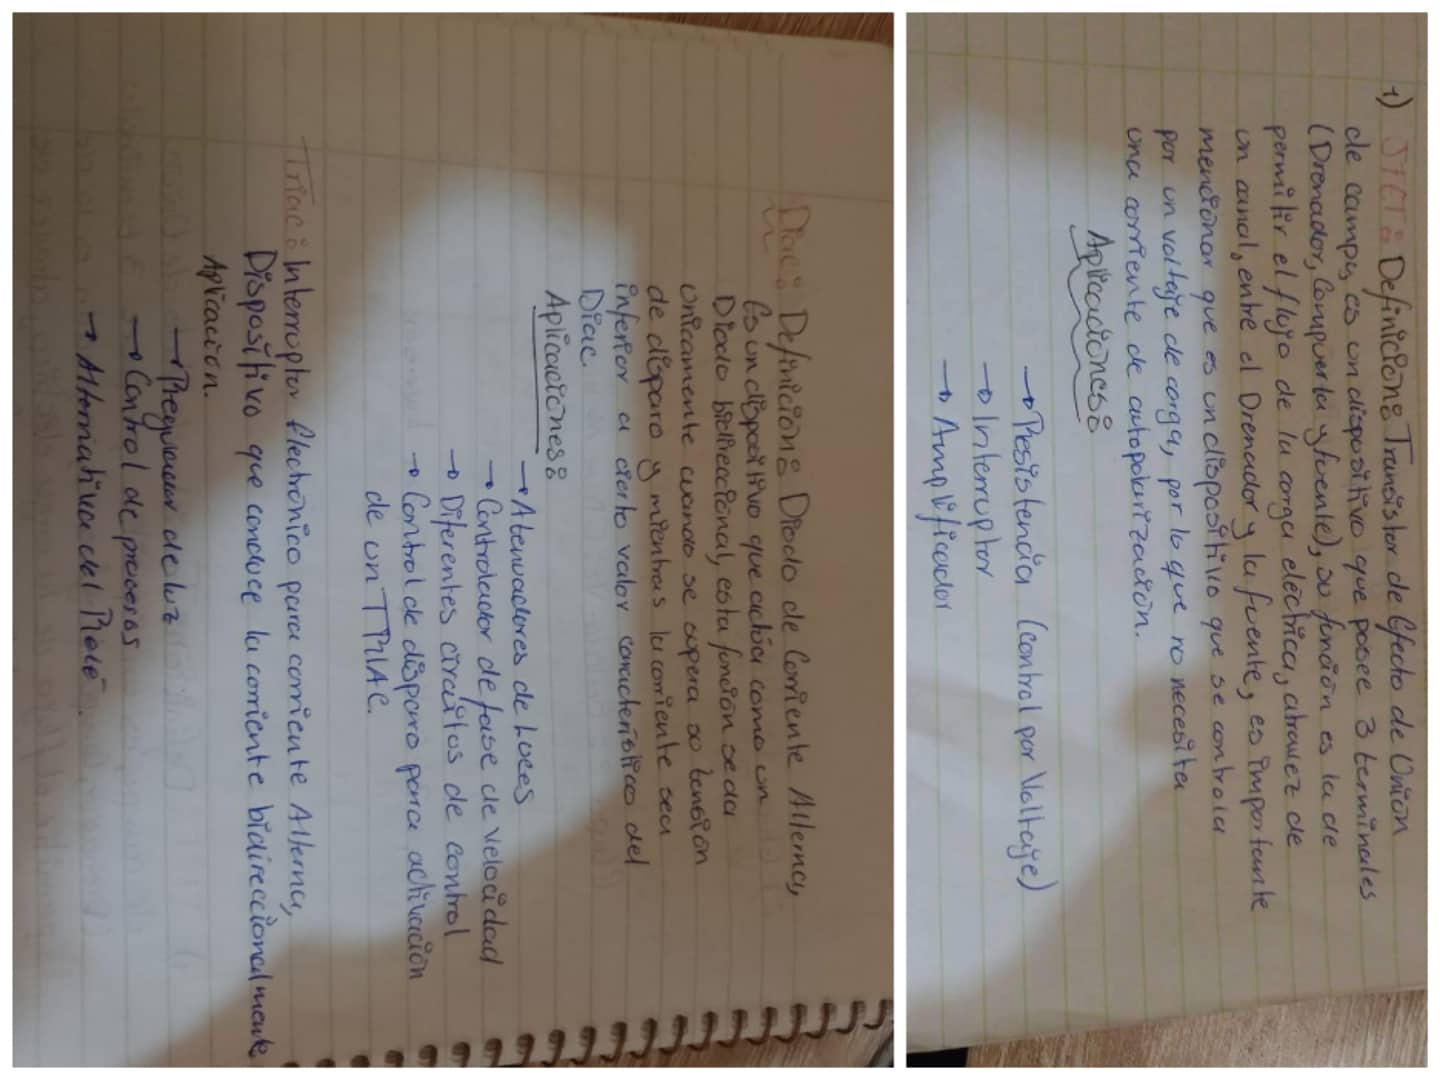 1) JFET: Definición: Transistor de Efecto de Unión
de campo, es un dispositivo que posee 3 terminales
(Drenador, Compuerta y fuente), su función es la de
permitir el flujo de la carga eléctrica, atravez de
un canal, entre el Drenador y la fuente, es importante
mencionar que es un dispositivo que se controla
por un voltaje de carga, por lo que no necesita
una corriente de autopolarización.
Aplicaciones:
→ Resistencia (control por Voltaje)
→ Interruptor
→ Amplificador
Diac: Definición: Diodo de Corriente Alterna,
Es un dispositivo que actúa como un
Diodo bidireccional, esta función se da
unicamente cuando se supera su tensión
de disparo y mientras la corriente sea
inferior a cierto valor característico del
Diac.
Aplicaciones:
→ Atenuadores de luces
→ Controlador de fase de velocidad
→ Diferentes circuitos de control
→ Control de disparo para activación
de un TRIAC.
Triac: Interruptor Electrónico para corriente Alterna,
Dispositivo que conduce la corriente bidireccionalmente
Aplicación.
→ Regulador de luz
→ Control de procesos
→ Alternativa del